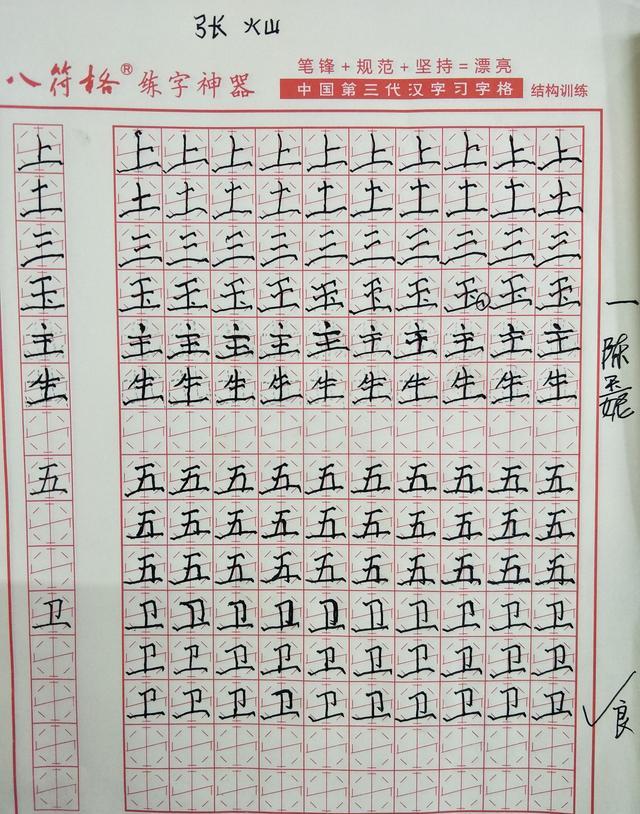 张 灿
八符格® 练字神器
笔锋+规范+坚持=漂亮
中国第三代汉字习字格 结构训练
上 上 上 上 上 上 上 上 上 上 上
土 土 土 土 土 土 土 土 土 土 土
三 三 三 三 三 三 三 三 三 三 三
玉 玉 玉 玉 玉 玉 玉 玉 玉 玉 玉
主 主 主 主 主 主 主 主 主 主 主
生 生 生 生 生 生 生 生 生 生 生
五 五 五 五 五 五 五 五 五 五 五
五 五 五 五 五 五 五 五 五 五
五 五 五 五 五 五 五 五 五 五
卫 卫 卫 卫 卫 卫 卫 卫 卫 卫 卫
卫 卫 卫 卫 卫 卫 卫 卫 卫 卫
卫 卫 卫 卫 卫 卫 卫 卫 卫 卫
一陈玉妮
良